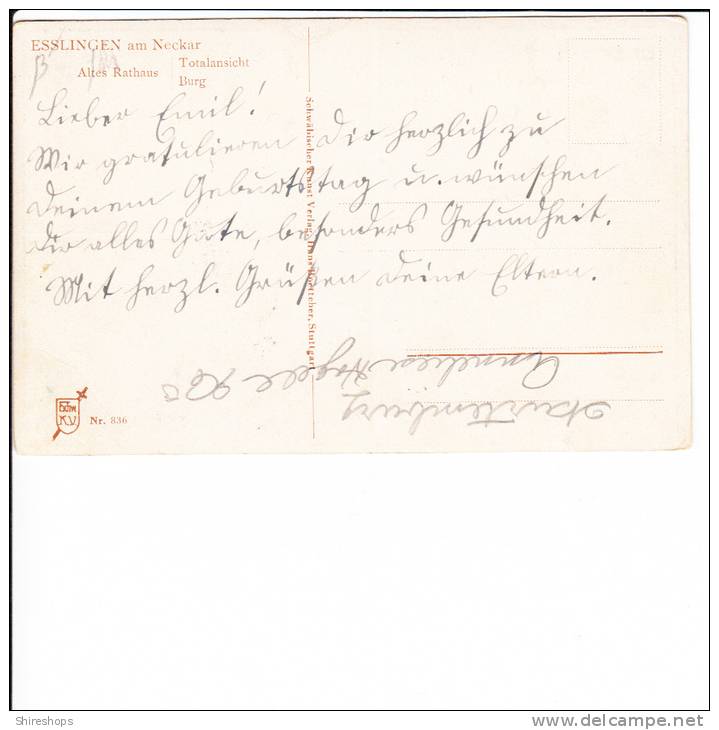 ESSLINGEN am Neckar
Altes Rathaus
Totalansicht
Burg
Lieber Emil!
Wir gratulieren Dir herzlich zu
Deinem Geburtstag u. wünschen
Dir alles Gute, besonders Gesundheit.
Mit herzl. Grüßen Deine Eltern.
Schwäbischer Kunst Verlag, Hans Boettcher, Stuttgart
Nr. 836
K.V.
Shireshops
delcampe.net